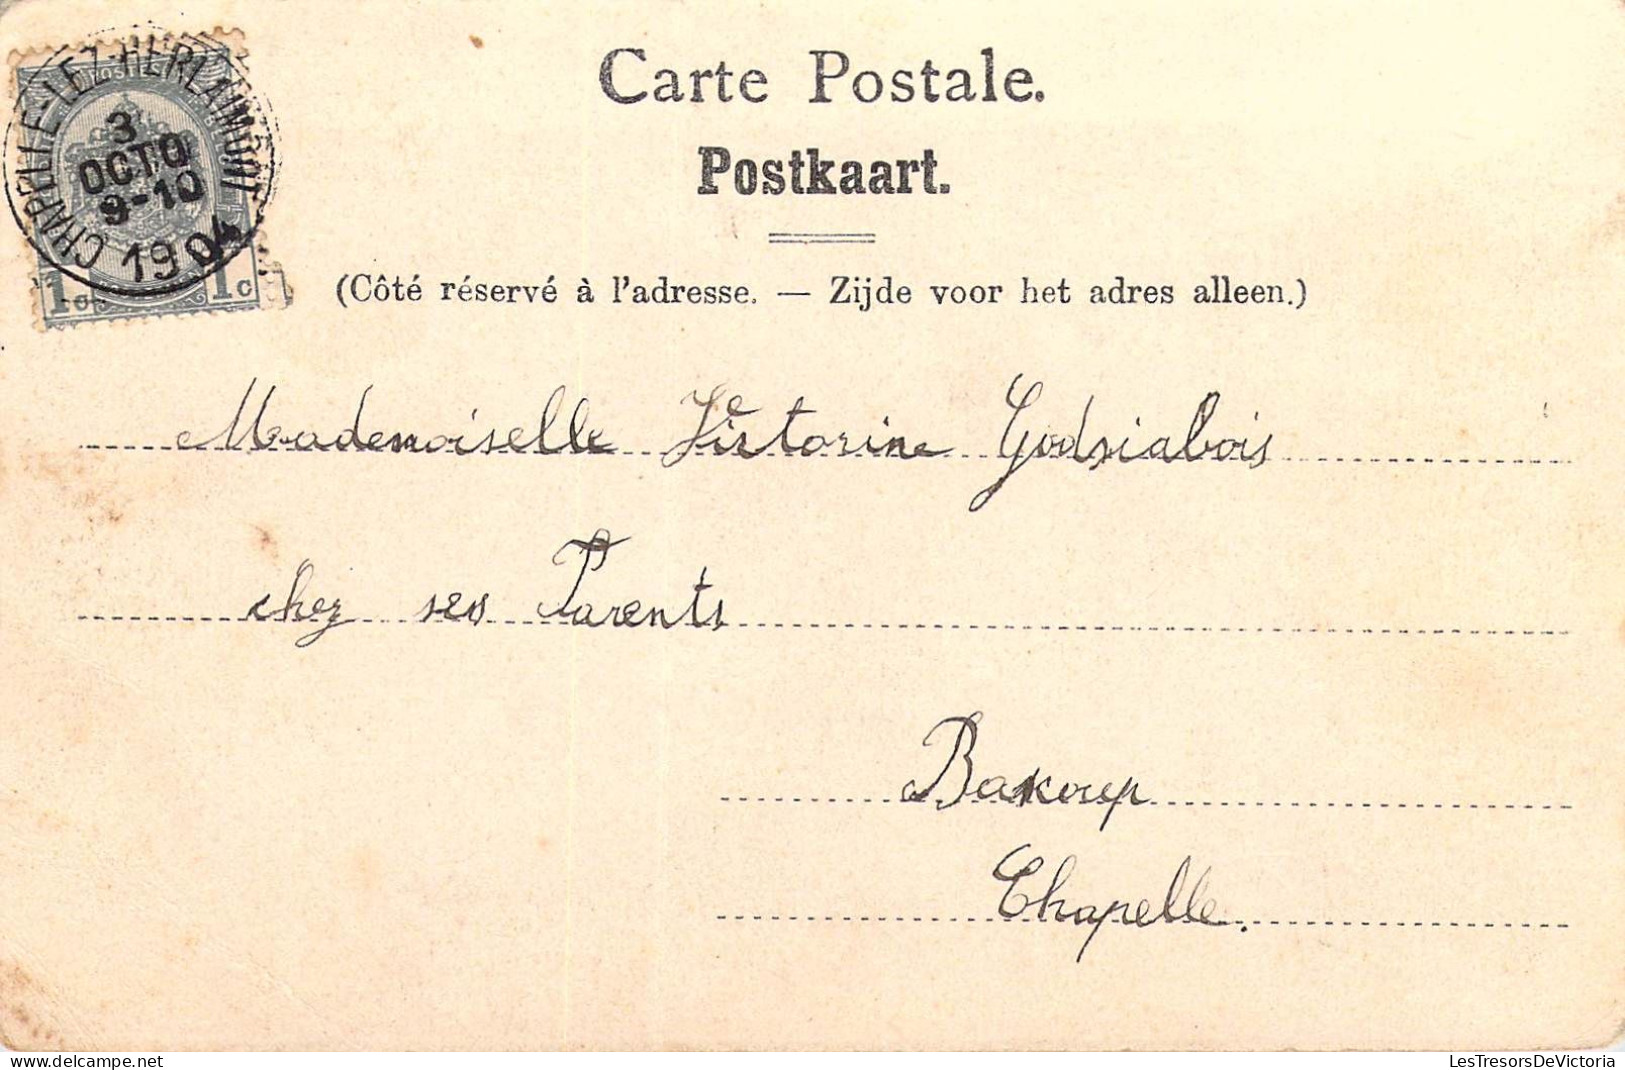 CHAPELLE-LEZ-HERLAIMONT
POSTES
3
OCTO
9-10
1904
1c 1c
Carte Postale.
Postkaart.
(Côté réservé à l'adresse. — Zijde voor het adres alleen.)
Mademoiselle Victorine
chez ses Parents
Bakoup
Chapelle.
LesTresorsDeVictoria
https://www.delcampe.net